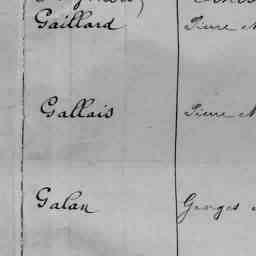 Gaillard Pierre
Gallais Pierre
Galan Georges